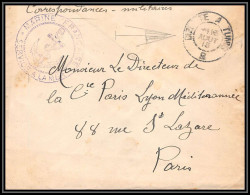 Correspondances - militaires
MARINE
Monsieur Le Directeur de
la Cie Paris Lyon Méditerranée
88 rue St Lazare
Paris